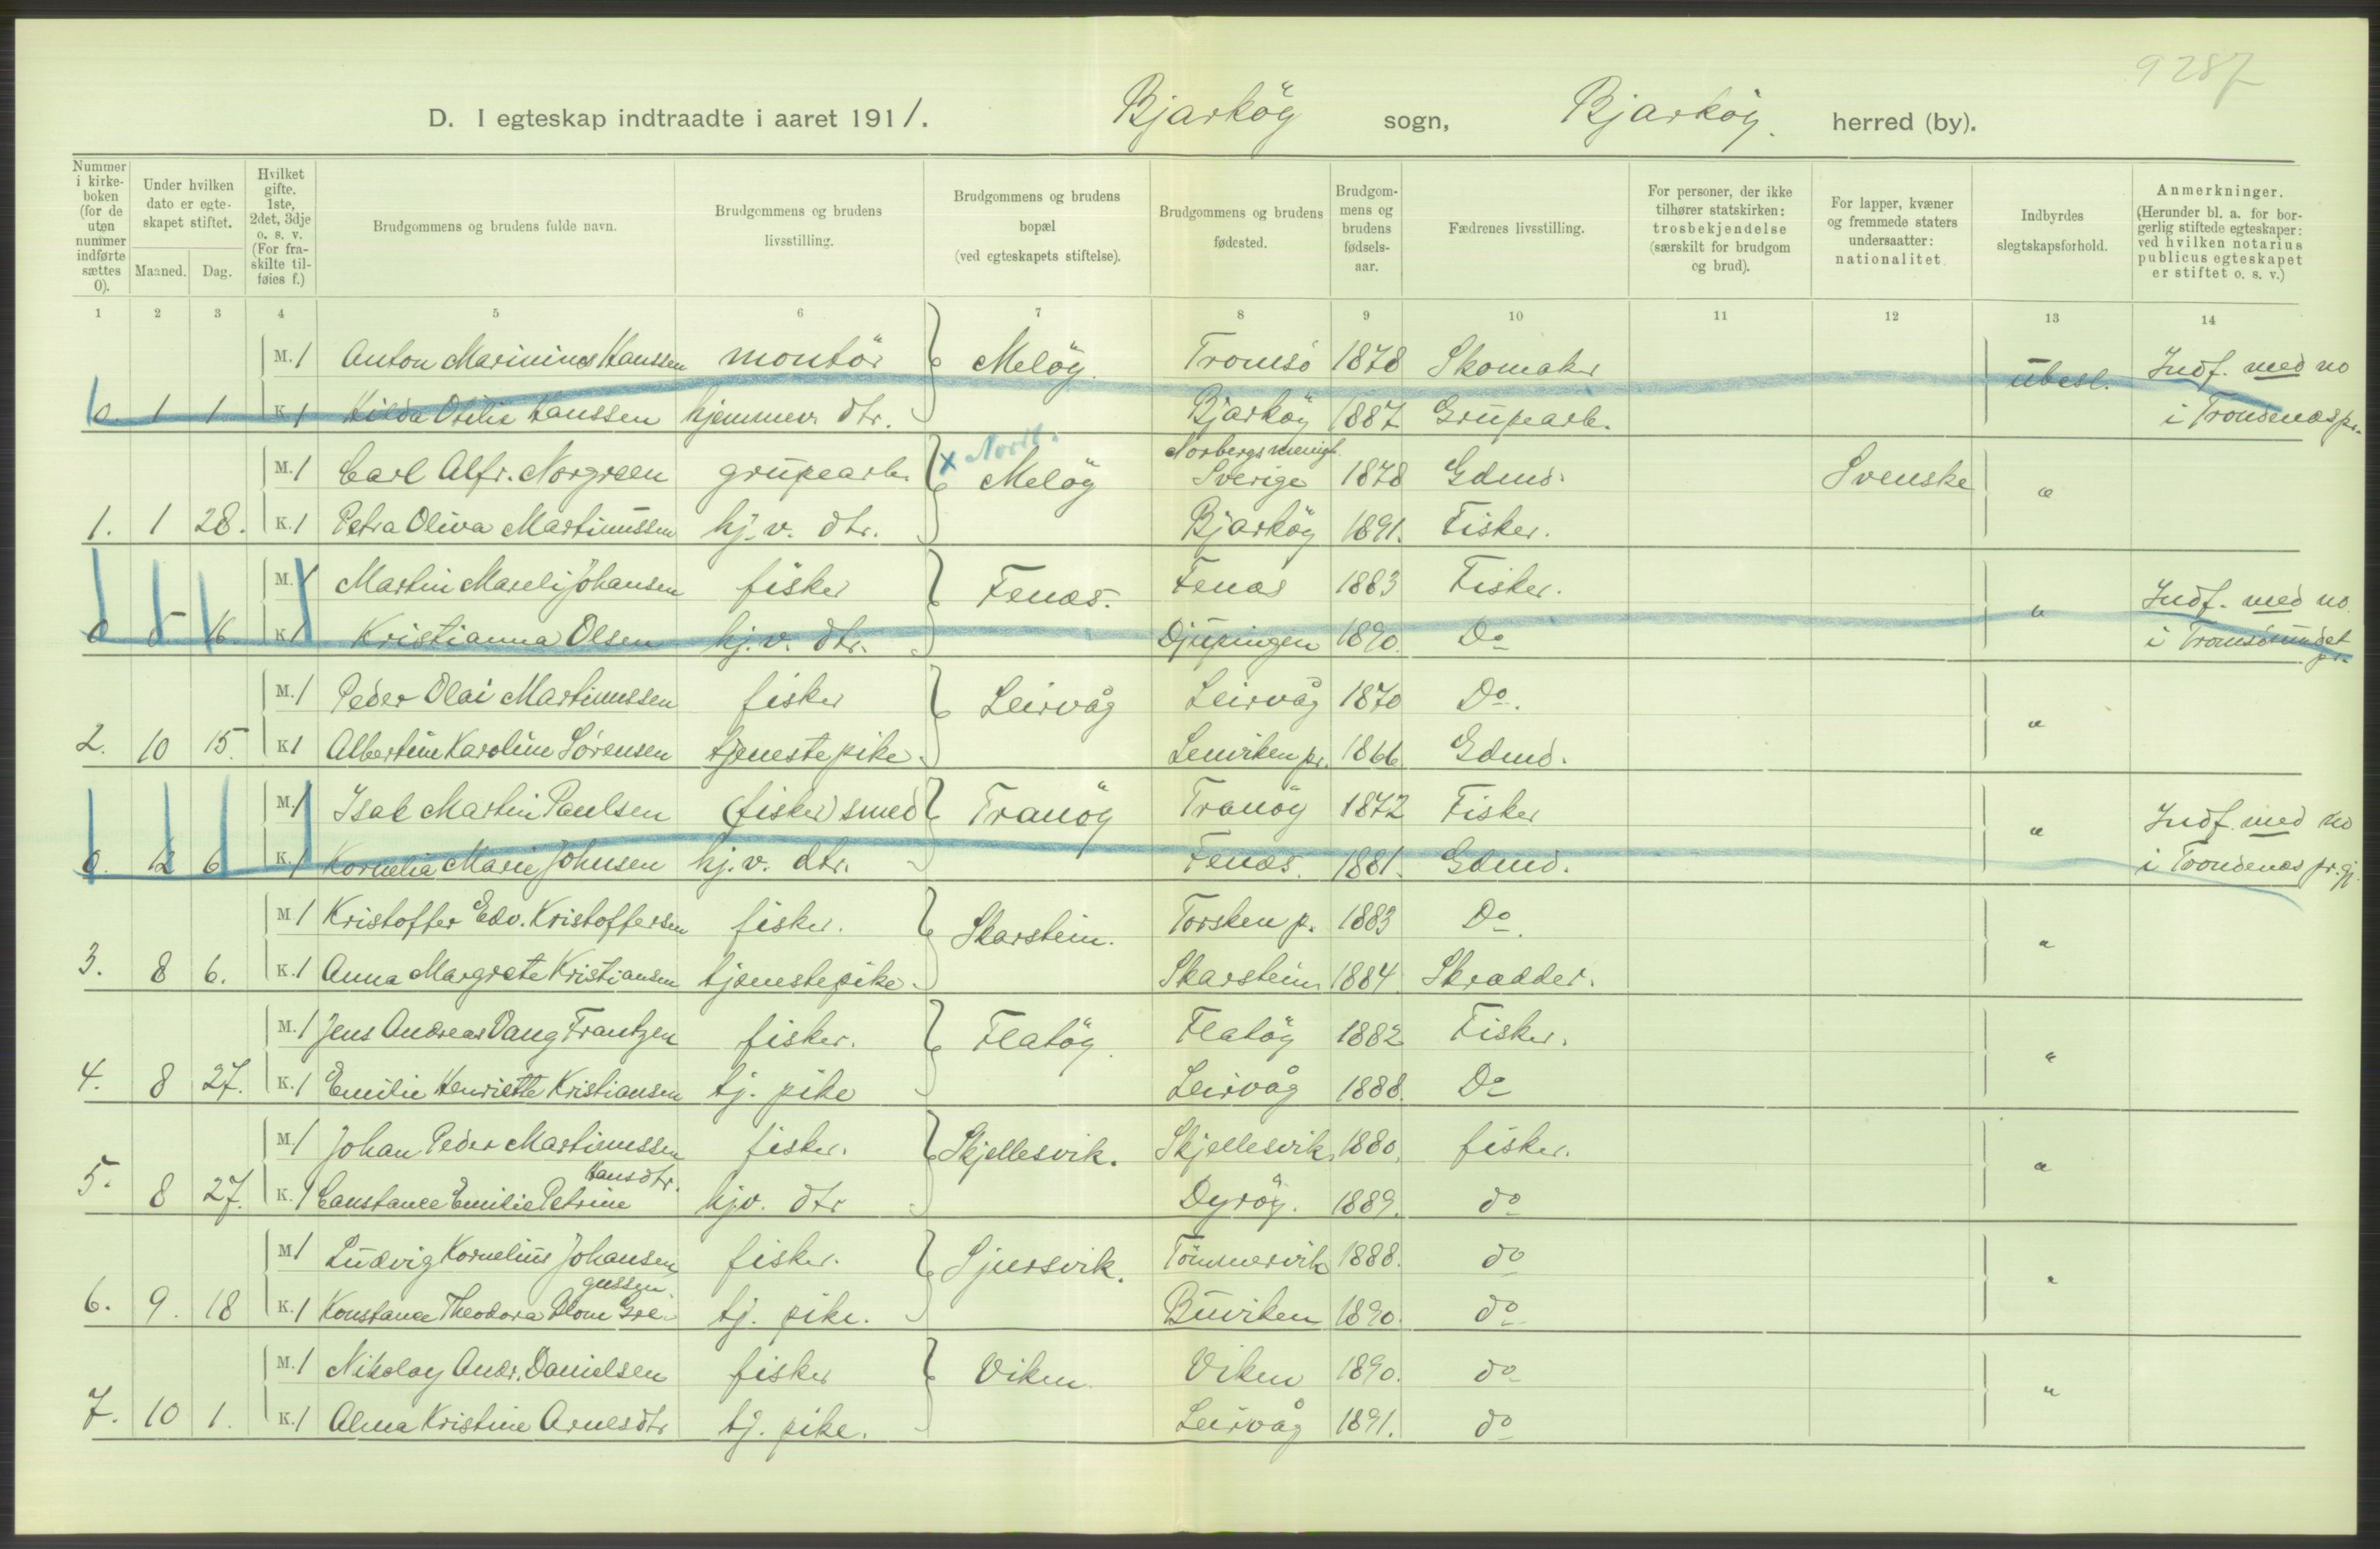 9287
D. I egteskap indtraadte i aaret 1911. Bjarköy sogn, Bjarköy. herred (by).
Nummer i kirke-boken (for de uten nummer indførte sættes 0).
Under hvilken dato er egte-skapet stiftet.
Maaned. Dag.
Hvilket gifte. 1ste, 2det, 3dje o. s. v. (For fra-skilte til-føies f.)
Brudgommens og brudens fulde navn.
Brudgommens og brudens livsstilling.
Brudgommens og brudens bopæl (ved egteskapets stiftelse).
Brudgommens og brudens fødested.
Brudgom-mens og brudens fødsels-aar.
Fædrenes livsstilling.
For personer, der ikke tilhører statskirken: trosbekjendelse (særskilt for brudgom og brud).
For lapper, kvæner og fremmede staters undersaatter: nationalitet.
Indbyrdes slegtskapsforhold.
Anmerkninger. (Herunder bl. a. for bor-gerlig stiftede egteskaper: ved hvilken notarius publicus egteskapet er stiftet o. s. v.)
1 2 3 4 5 6 7 8 9 10 11 12 13 14
M. 1 Anton Marinius Hanssen montör Melöy. Tromsö 1878 Skomaker ubesl. Indf. med no
0. 1 1 K 1 Hilda Otilie Hanssen hjemmev. dtr. Bjarköy 1887 Grupearb. i Trondenæs pr.
x Norbergs menigh.
M. 1 Carl Alfr. Norgreen grupearb. Melöy Sverige 1878 Gdmd. Svenske "
1. 1 28. K. 1 Petra Oliva Martinussen hj. v. dtr. Bjarköy 1891. Fisker.
M. 1 Martin Mareli Johansen fisker Fenæs. Fenæs 1883 Fisker. " Indf. med no.
0 5 16. K 1 Kristianna Olsen hj. v. dtr. Djupingen 1890. Do i Tromsösundet pr.
M. 1 Peder Olai Martinussen fisker Leirvåg Leirvåg 1870 Do. "
2. 10 15. K 1 Albertine Karoline Sörensen tjenestepike. Lenviken pr. 1866 Gdmd.
M. 1 Isak Martin Paulsen (fisker) smed Tranöy Tranöy 1872 Fisker " Indf. med no
0. 12 6 K. 1 Kornelia Marie Johnsen hj. v. dtr. Fenæs. 1881. Gdmd. i Trondenæs pr.gj.
M 1 Kristoffer Edv. Kristoffersen fisker. Skarstein. Torsken p. 1883 Do. "
3. 8 6. K. 1 Anna Margrete Kristiansen tjenestepike. Skarstein 1884 Skrædder.
M. 1 Jens Andreas Vang Frantzen fisker. Flatöy. Flatöy 1882 Fisker. "
4. 8 27. K. 1 Emilie Henriette Kristiansen tj. pike Leirvåg 1888. Do
M. 1 Johan Peder Martinussen fisker. Skjellesvik. Skjellesvik. 1880. fisker. "
Hansdtr.
5. 8 27. K. 1 Canstance Emilie Petrine hjv. dtr Dyröy. 1889. do
M 1 Ludvig Kornelius Johansen fisker. Sjursvik. Tömmervik 1888. do "
gussen
6. 9. 18 K. 1 Konstance Theodora Blom Gre- tj. pike. Buviken 1890. do
M. 1 Nikolay Andr. Danielsen fisker Viken Viken 1890. do "
7. 10 1. K. 1 Alma Kristine Arnesdtr tj. pike. Leirvåg 1891. do